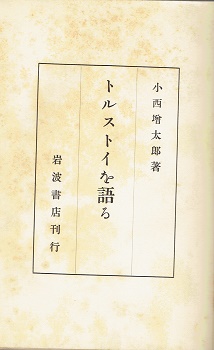 小西增太郎著
トルストイを語る
岩波書店刊行